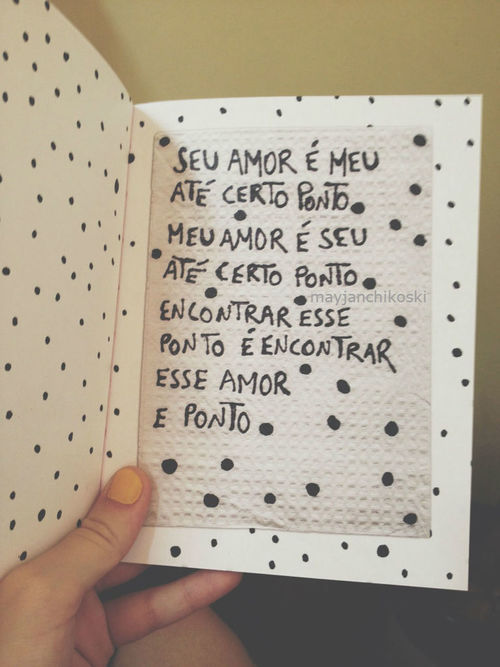 SEU AMOR É MEU
ATÉ CERTO PONTO.
MEU AMOR É SEU
ATÉ CERTO PONTO.
mayjanchikoski
ENCONTRAR ESSE
PONTO É ENCONTRAR
ESSE AMOR
E PONTO.